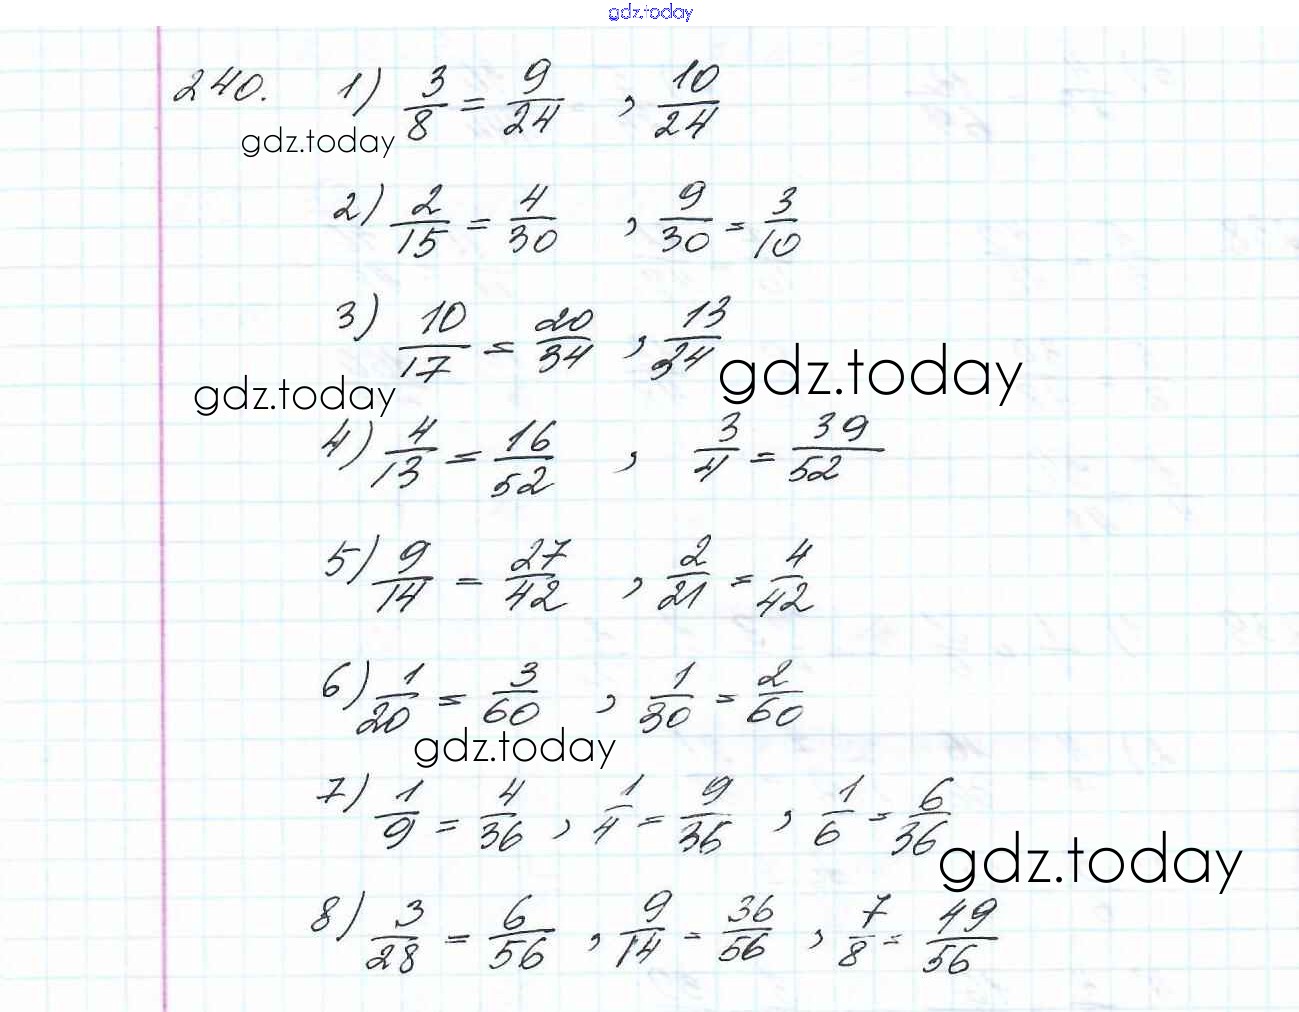 gdz.today
240. 1) 3/8 = 9/24 , 10/24
gdz.today
2) 2/15 = 4/30 , 9/30 = 3/10
3) 10/17 = 20/34 , 13/34
gdz.today
gdz.today
4) 4/13 = 16/52 , 3/4 = 39/52
5) 9/14 = 27/42 , 2/21 = 4/42
6) 1/20 = 3/60 , 1/30 = 2/60
gdz.today
7) 1/9 = 4/36 , 1/4 = 9/36 , 1/6 = 6/36
gdz.today
8) 3/28 = 6/56 , 9/14 = 36/56 , 7/8 = 49/56